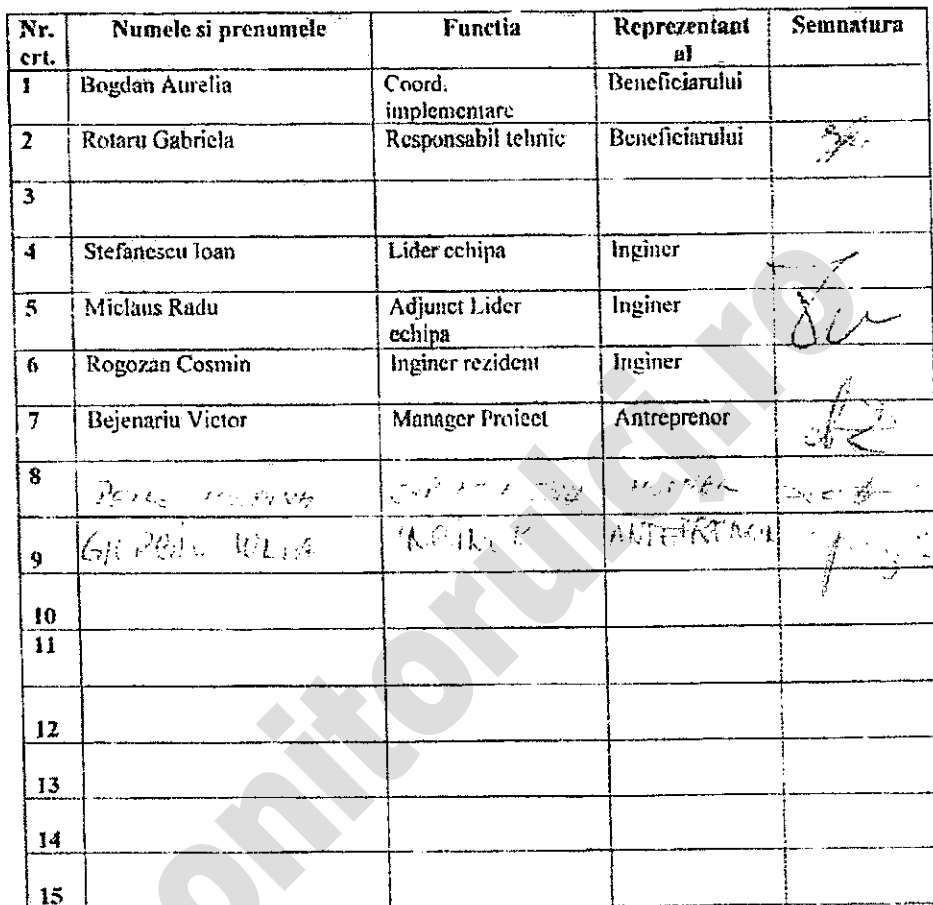 Nr. crt. Numele si prenumele Functia Reprezentant al Semnatura
1 Bogdan Aurelia Coord. implementare Beneficiarului
2 Rotaru Gabriela Responsabil tehnic Beneficiarului
3
4 Stefanescu Ioan Lider echipa Inginer
5 Miclaus Radu Adjunct Lider echipa Inginer
6 Rogozan Cosmin Inginer rezident Inginer
7 Bejenariu Victor Manager Proiect Antreprenor
8
9
10
11
12
13
14
15
onitorulcj.ro